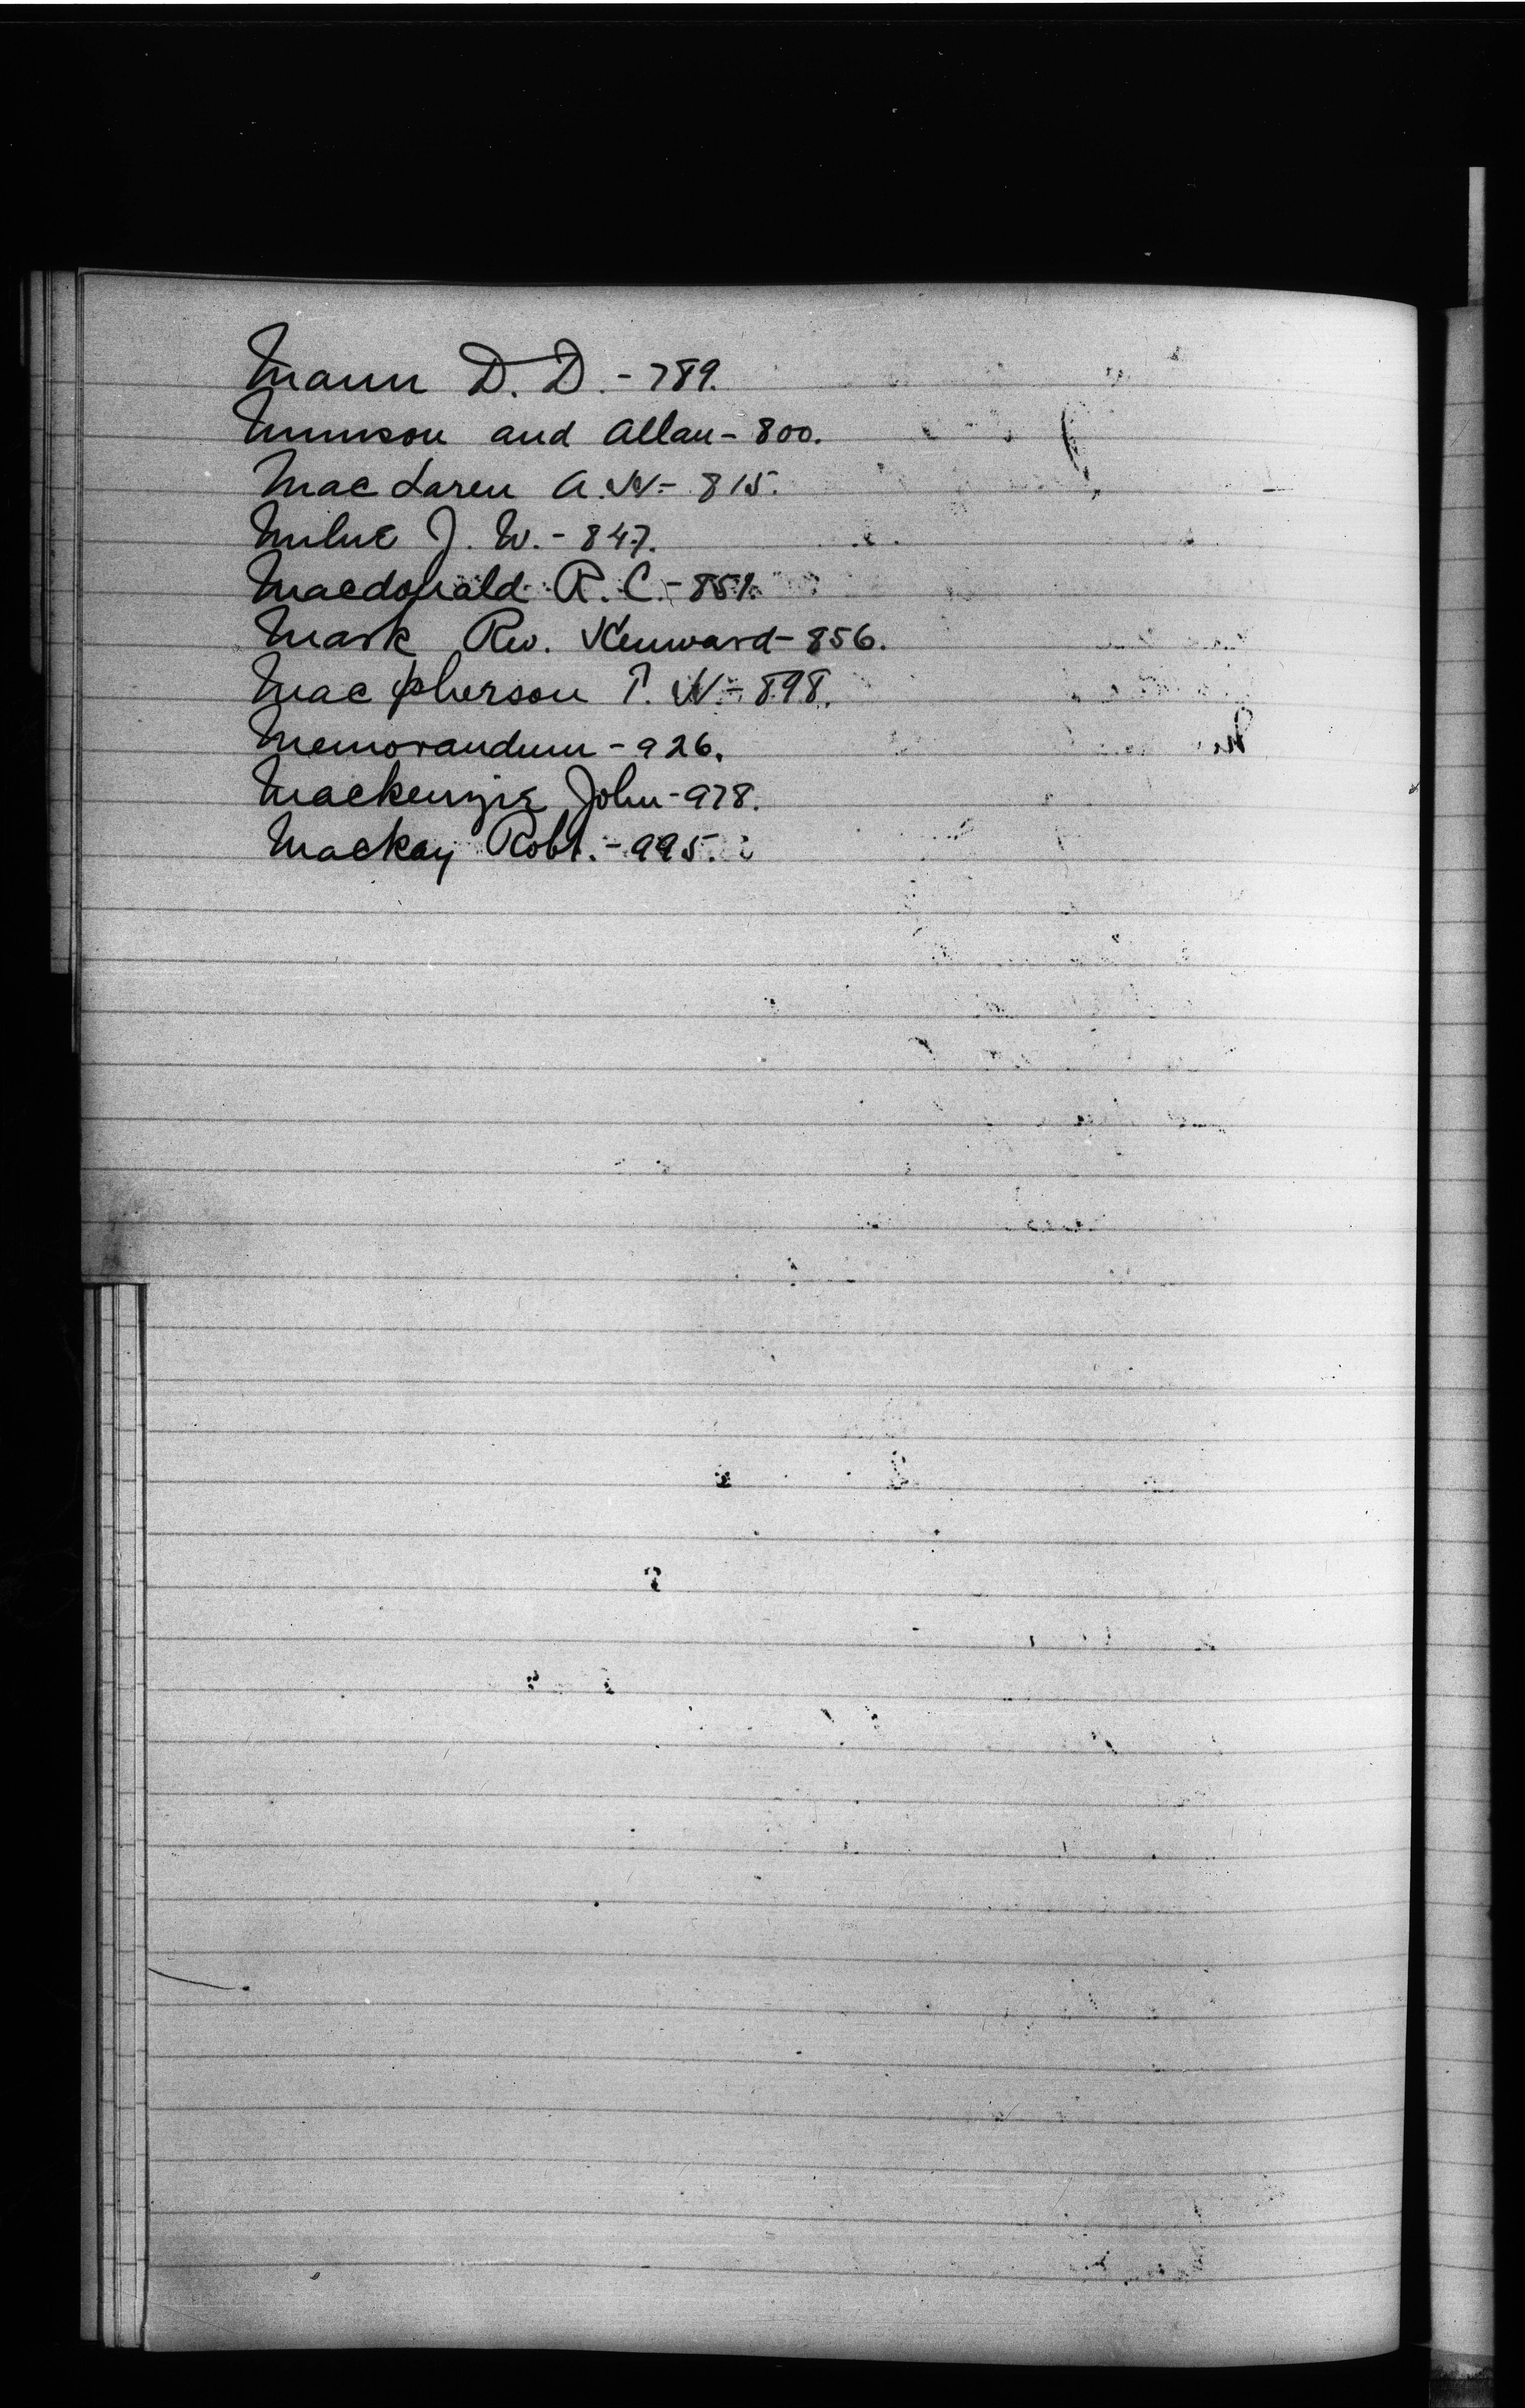 Mann D. D. - 789.
Munson and Allan - 800.
MacLaren A. W. - 815.
Milne J. W. - 847.
Macdonald R. C. - 851.
Mark Rev. Kenward - 856.
Macpherson P. W. - 898.
Memorandum - 926.
Mackenzie John - 978.
Mackay Robt. - 995.